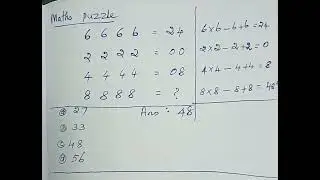 Maths Puzzle
6 6 6 6 = 24
2 2 2 2 = 00
4 4 4 4 = 08
8 8 8 8 = ?
Ans : 48
ⓐ 27
ⓑ 33
ⓒ 48
ⓓ 56
6×6 – 6+6 = 24
2×2 – 2+2 = 0
4×4 – 4+4 = 8
8×8 – 8+8 = 48